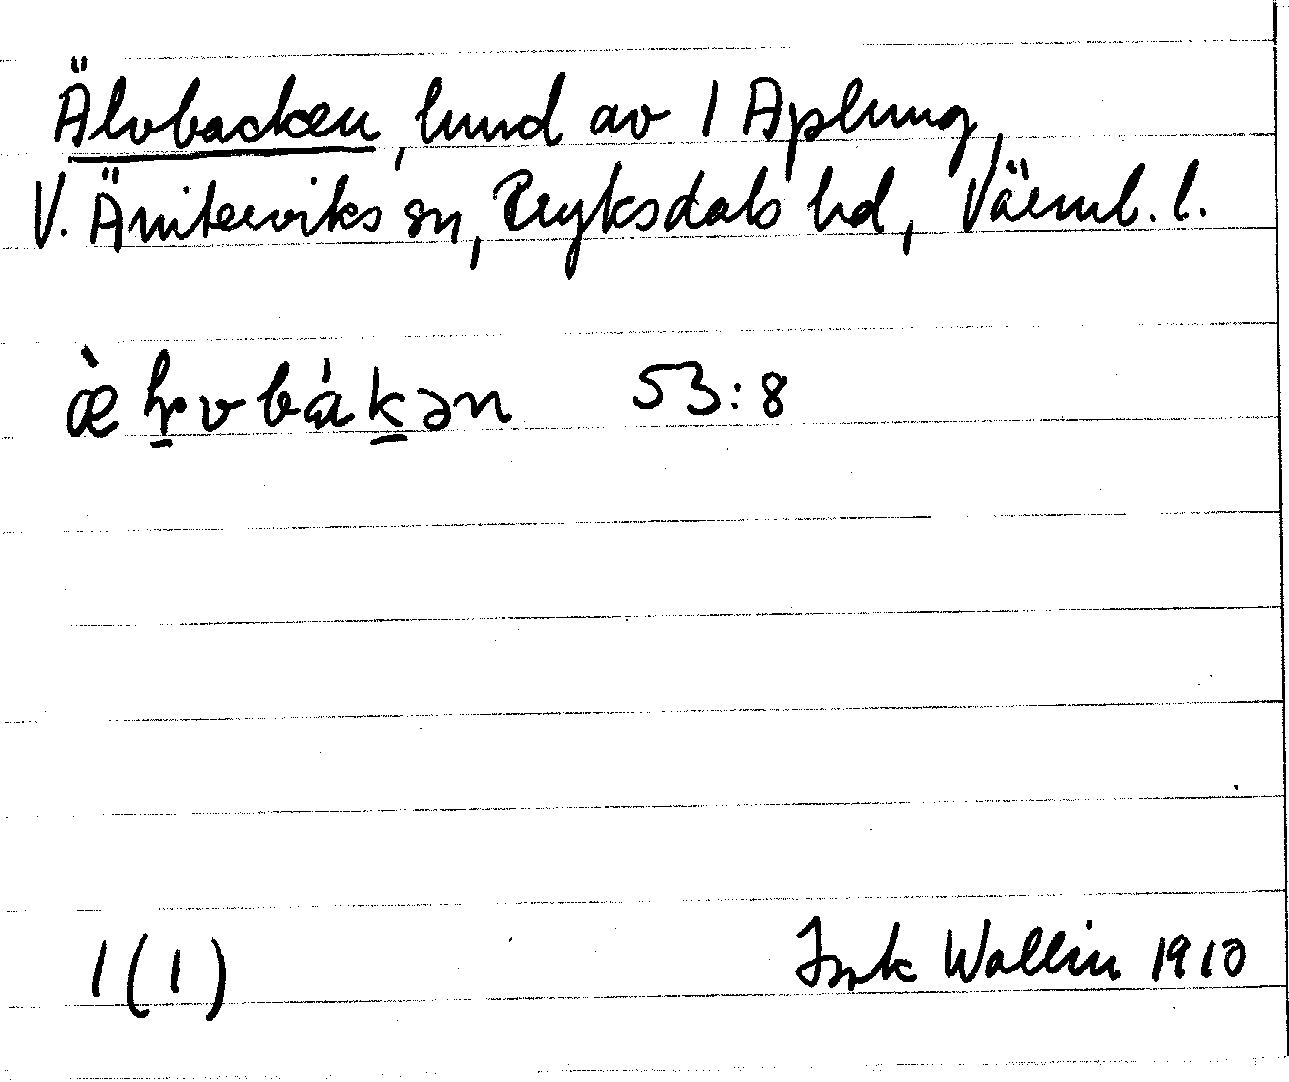 Älvbacken, lund av 1 Aplung,
V. Ämterviks sn, Fryksdals hd, Värml. l.
53:8
1(1)
Wallin 1910